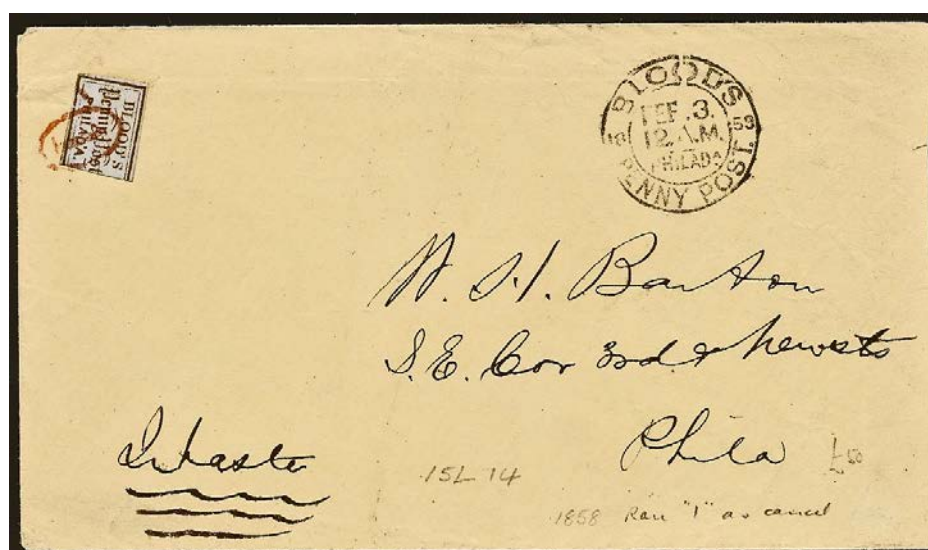 BLOOD'S
Penny Post
PHILADA
BLOOD'S
FEB. 3.
12 A.M.
18 58
PHILADA
PENNY POST.
W. H. Barton
S. E. Cor 3rd & New sts
Phila
In haste
15L 14
£50
1858 Rare "1" as cancel